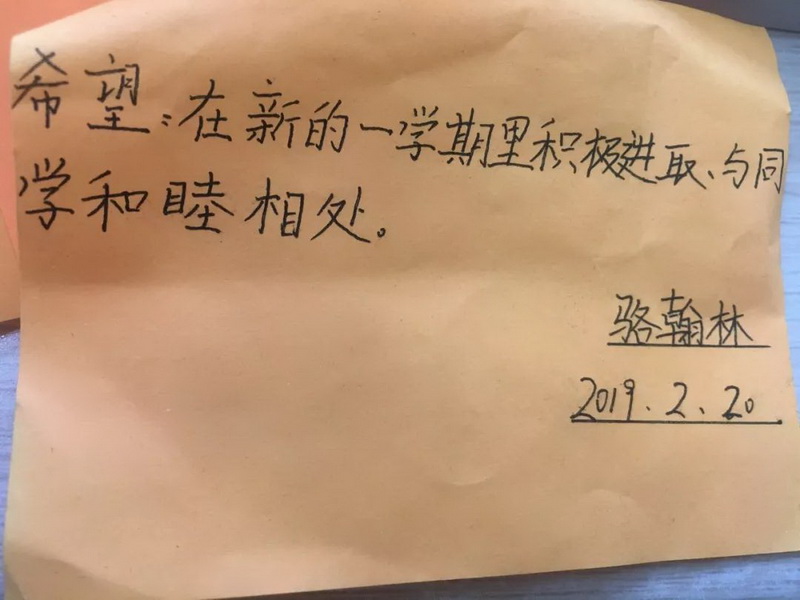 希望：在新的一学期里积极进取、与同
学和睦相处。
骆翰林
2019.2.20